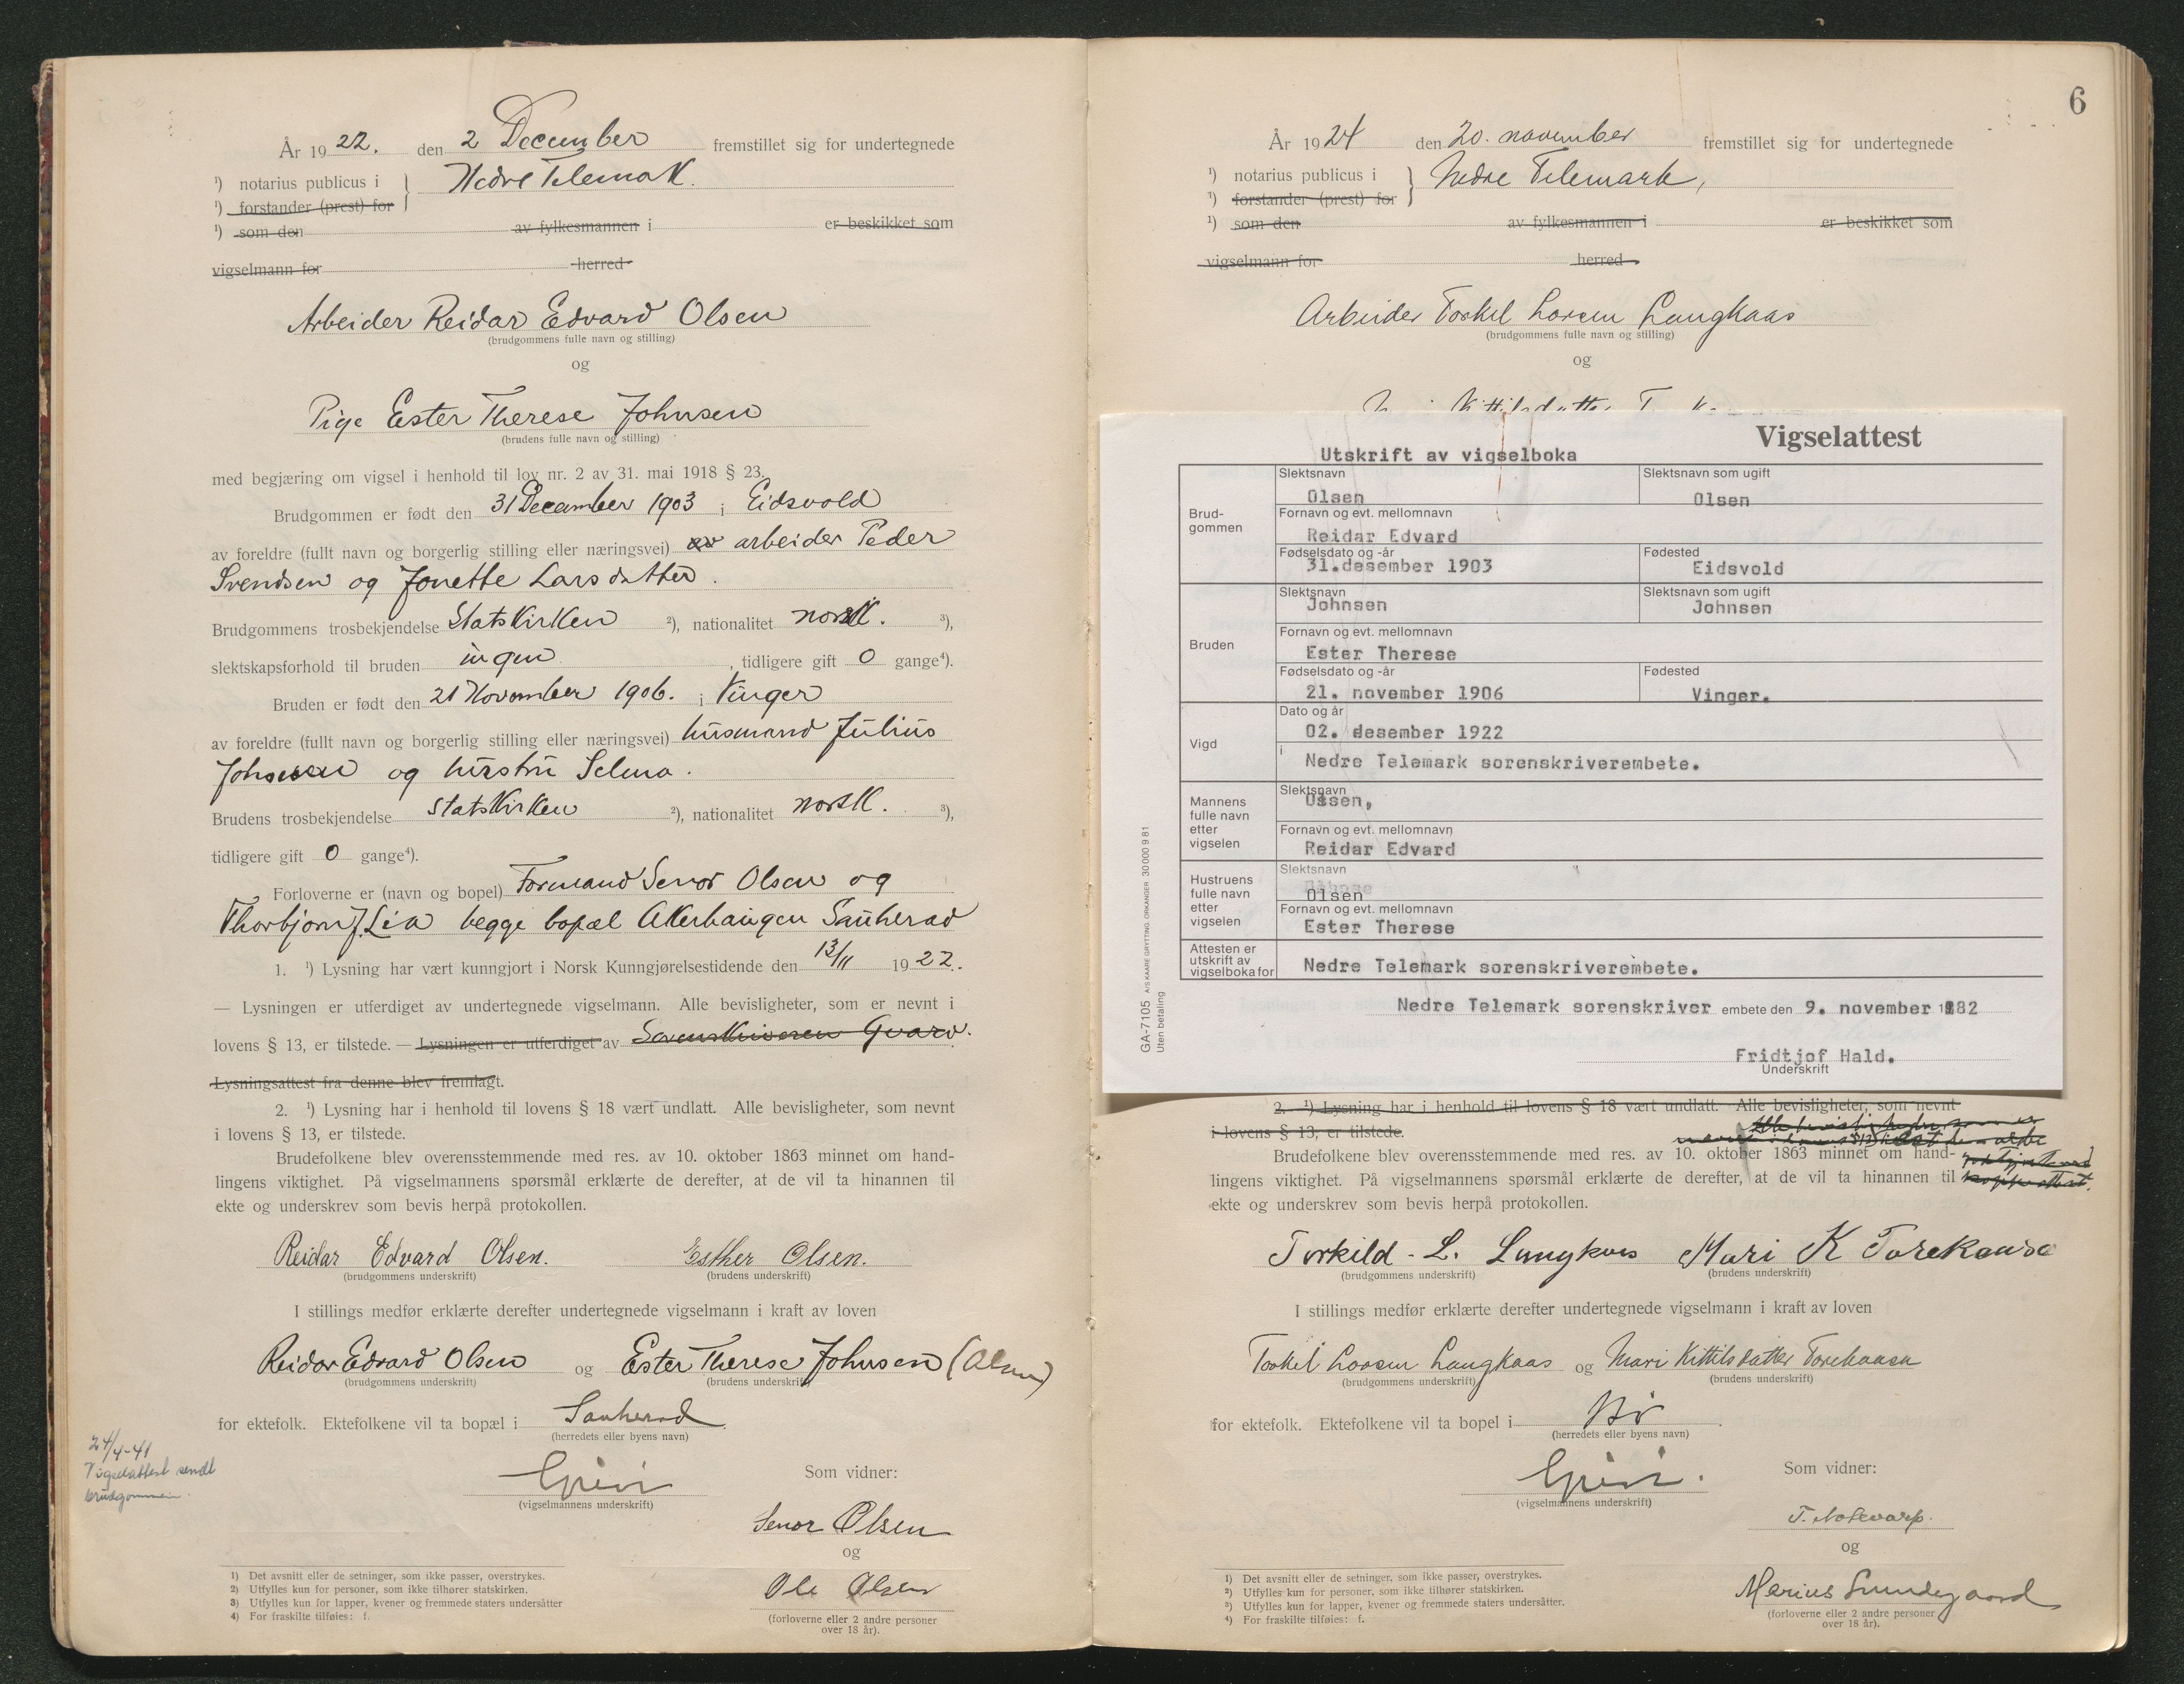 År 1922. den 2 December fremstillet sig for undertegnede
¹) notarius publicus i } Nedre Telemark.
¹) forstander (prest) for
¹) som den av fylkesmannen i er beskikket som
vigselmann for herred
Arbeider Reidar Edvard Olsen
(brudgommens fulle navn og stilling)
og
Pige Ester Therese Johnsen
(brudens fulle navn og stilling)
med begjæring om vigsel i henhold til lov nr. 2 av 31. mai 1918 § 23.
Brudgommen er født den 31 December 1903 i Eidsvold
av foreldre (fullt navn og borgerlig stilling eller næringsvei) av arbeider Peder
Svendsen og Jonette Larsdatter.
Brudgommens trosbekjendelse Statskirken ²), nationalitet norsk. ³),
slektskapsforhold til bruden ingen , tidligere gift 0 gange⁴).
Bruden er født den 21 November 1906. i Vinger
av foreldre (fullt navn og borgerlig stilling eller næringsvei) husmand Julius
Johnsen og hustru Selma.
Brudens trosbekjendelse statskirken ²), nationalitet norsk. ³),
tidligere gift 0 gange⁴).
Forloverne er (navn og bopel) Formand Senor Olsen og
Thorbjørn J. Lia begge bopæl Akerhaugen Sauherad
1. ¹) Lysning har vært kunngjort i Norsk Kunngjørelsestidende den 13/11 1922.
— Lysningen er utferdiget av undertegnede vigselmann. Alle bevisligheter, som er nevnt i
lovens § 13, er tilstede. — Lysningen er utferdiget av Sorenskriveren Gvarv.
Lysningsattest fra denne blev fremlagt.
2. ¹) Lysning har i henhold til lovens § 18 vært undlatt. Alle bevisligheter, som nevnt
i lovens § 13, er tilstede.
Brudefolkene blev overensstemmende med res. av 10. oktober 1863 minnet om hand-
lingens viktighet. På vigselmannens spørsmål erklærte de derefter, at de vil ta hinannen til
ekte og underskrev som bevis herpå protokollen.
Reidar Edvard Olsen. Esther Olsen.
(brudgommens underskrift) (brudens underskrift)
I stillings medfør erklærte derefter undertegnede vigselmann i kraft av loven
Reidar Edvard Olsen og Ester Therese Johnsen (Olsen)
(brudgommens underskrift) (brudens underskrift)
for ektefolk. Ektefolkene vil ta bopæl i Sauherad
(herredets eller byens navn)
24/4-41
Vigselattest sendt
brudgommen.
(vigselmannens underskrift)
Som vidner:
Senor Olsen
og
Ole Olsen
(forloverne eller 2 andre personer
over 18 år).
1) Det avsnitt eller de setninger, som ikke passer, overstrykes.
2) Utfylles kun for personer, som ikke tilhører statskirken.
3) Utfylles kun for lapper, kvener og fremmede staters undersåtter
4) For fraskilte tilføies: f.
6
År 1924 den 20. november fremstillet sig for undertegnede
¹) notarius publicus i } Nedre Telemark,
¹) forstander (prest) for
¹) som den av fylkesmannen i er beskikket som
vigselmann for herred
Arbeider Torkel Larsen Langkaas
(brudgommens fulle navn og stilling)
og
Vigselattest
Utskrift av vigselboka
Slektsnavn Slektsnavn som ugift
Olsen Olsen
Brud-
gommen
Fornavn og evt. mellomnavn
Reidar Edvard
Fødselsdato og -år Fødested
31.desember 1903 Eidsvold
Slektsnavn Slektsnavn som ugift
Johnsen Johnsen
Bruden
Fornavn og evt. mellomnavn
Ester Therese
Fødselsdato og -år Fødested
21. november 1906 Vinger.
Vigd
Dato og år
02. desember 1922
i
Nedre Telemark sorenskriverembete.
Mannens
fulle navn
etter
vigselen
Slektsnavn
Olsen,
Fornavn og evt. mellomnavn
Reidar Edvard
Hustruens
fulle navn
etter
vigselen
Slektsnavn
Olsen
Fornavn og evt. mellomnavn
Ester Therese
Attesten er
utskrift av
vigselboka for
Nedre Telemark sorenskriverembete.
Nedre Telemark sorenskriver embete den 9. november 1982
Fridtjof Hald.
Underskrift
GA-7105 A/S KAARE GRYTTING, ORKANGER 30 000 9 81
Uten betaling
2. ¹) Lysning har i henhold til lovens § 18 vært undlatt. Alle bevisligheter, som nevnt
i lovens § 13, er tilstede.
Brudefolkene blev overensstemmende med res. av 10. oktober 1863 minnet om hand-
lingens viktighet. På vigselmannens spørsmål erklærte de derefter, at de vil ta hinannen til
ekte og underskrev som bevis herpå protokollen.
Torkild - L. Langkaas Mari K Torekaasa
(brudgommens underskrift) (brudens underskrift)
I stillings medfør erklærte derefter undertegnede vigselmann i kraft av loven
Torkel Larsen Langkaas og Mari Kittilsdatter Torekaasa
(brudgommens underskrift) (brudens underskrift)
for ektefolk. Ektefolkene vil ta bopel i Bø
(herredets eller byens navn)
(vigselmannens underskrift)
Som vidner:
T. Notevarp.
og
Marius Sundegaard
(forloverne eller 2 andre personer
over 18 år).
1) Det avsnitt eller de setninger, som ikke passer, overstrykes.
2) Utfylles kun for personer, som ikke tilhører statskirken.
3) Utfylles kun for lapper, kvener og fremmede staters undersåtter.
4) For fraskilte tilføies: f.